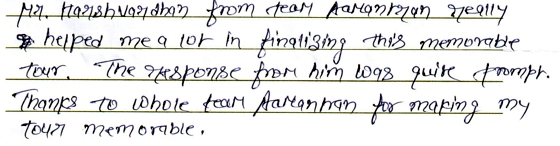 Mr. Harshvardhan from team Aamantran really
helped me a lot in finalising this memorable
tour. The response from him was quite prompt.
Thanks to whole team Aamantran for making my
tour memorable.